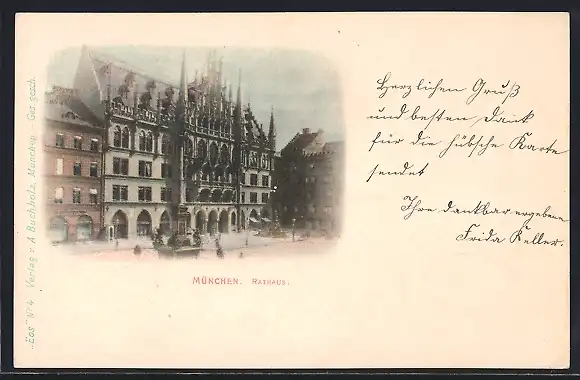 Herzlichen Gruß
und besten Dank
für die hübsche Karte
sendet
Ihre dankbar ergebene
Frida Keller.
MÜNCHEN. RATHAUS.
"Eos" No 4 Verlag v. A. Buchholz, München Ges. gesch.